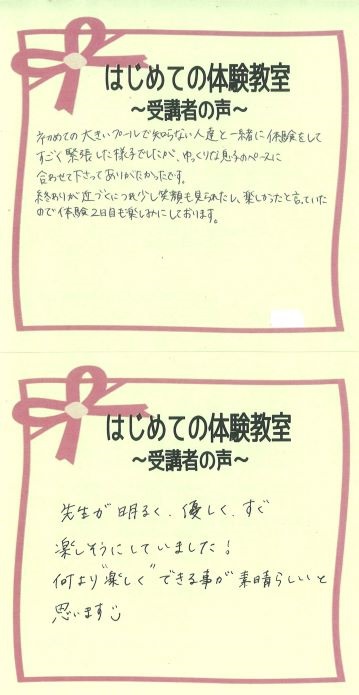 はじめての体験教室
～受講者の声～
初めての大きいプールで知らない人達と一緒に体験をして
すごく緊張した様子でしたが、ゆっくりな息子のペースに
合わせて下さってありがたかったです。
終わりが近づくにつれ少し笑顔も見られたし、楽しかったと言っていた
ので体験2日目も楽しみにしております。
はじめての体験教室
～受講者の声～
先生が明るく、優しく、すご
楽しそうにしていました!
何より"楽しく"できる事が素晴らしいと
思います